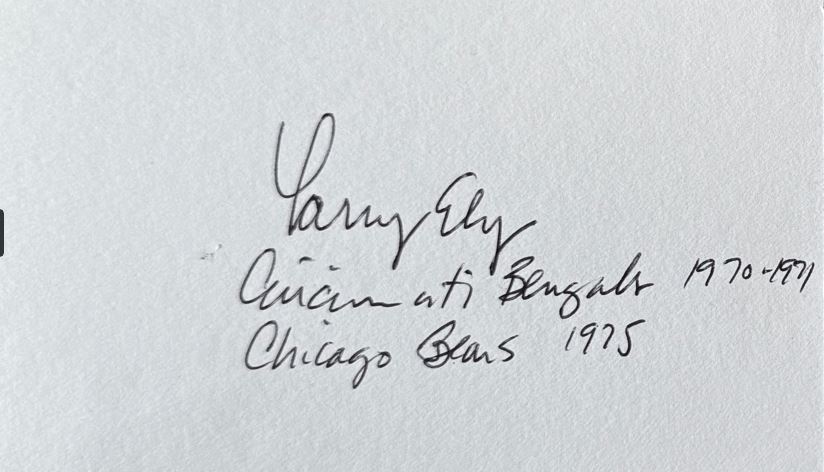 Larry Ely
Cincinnati Bengals 1970-1971
Chicago Bears 1975